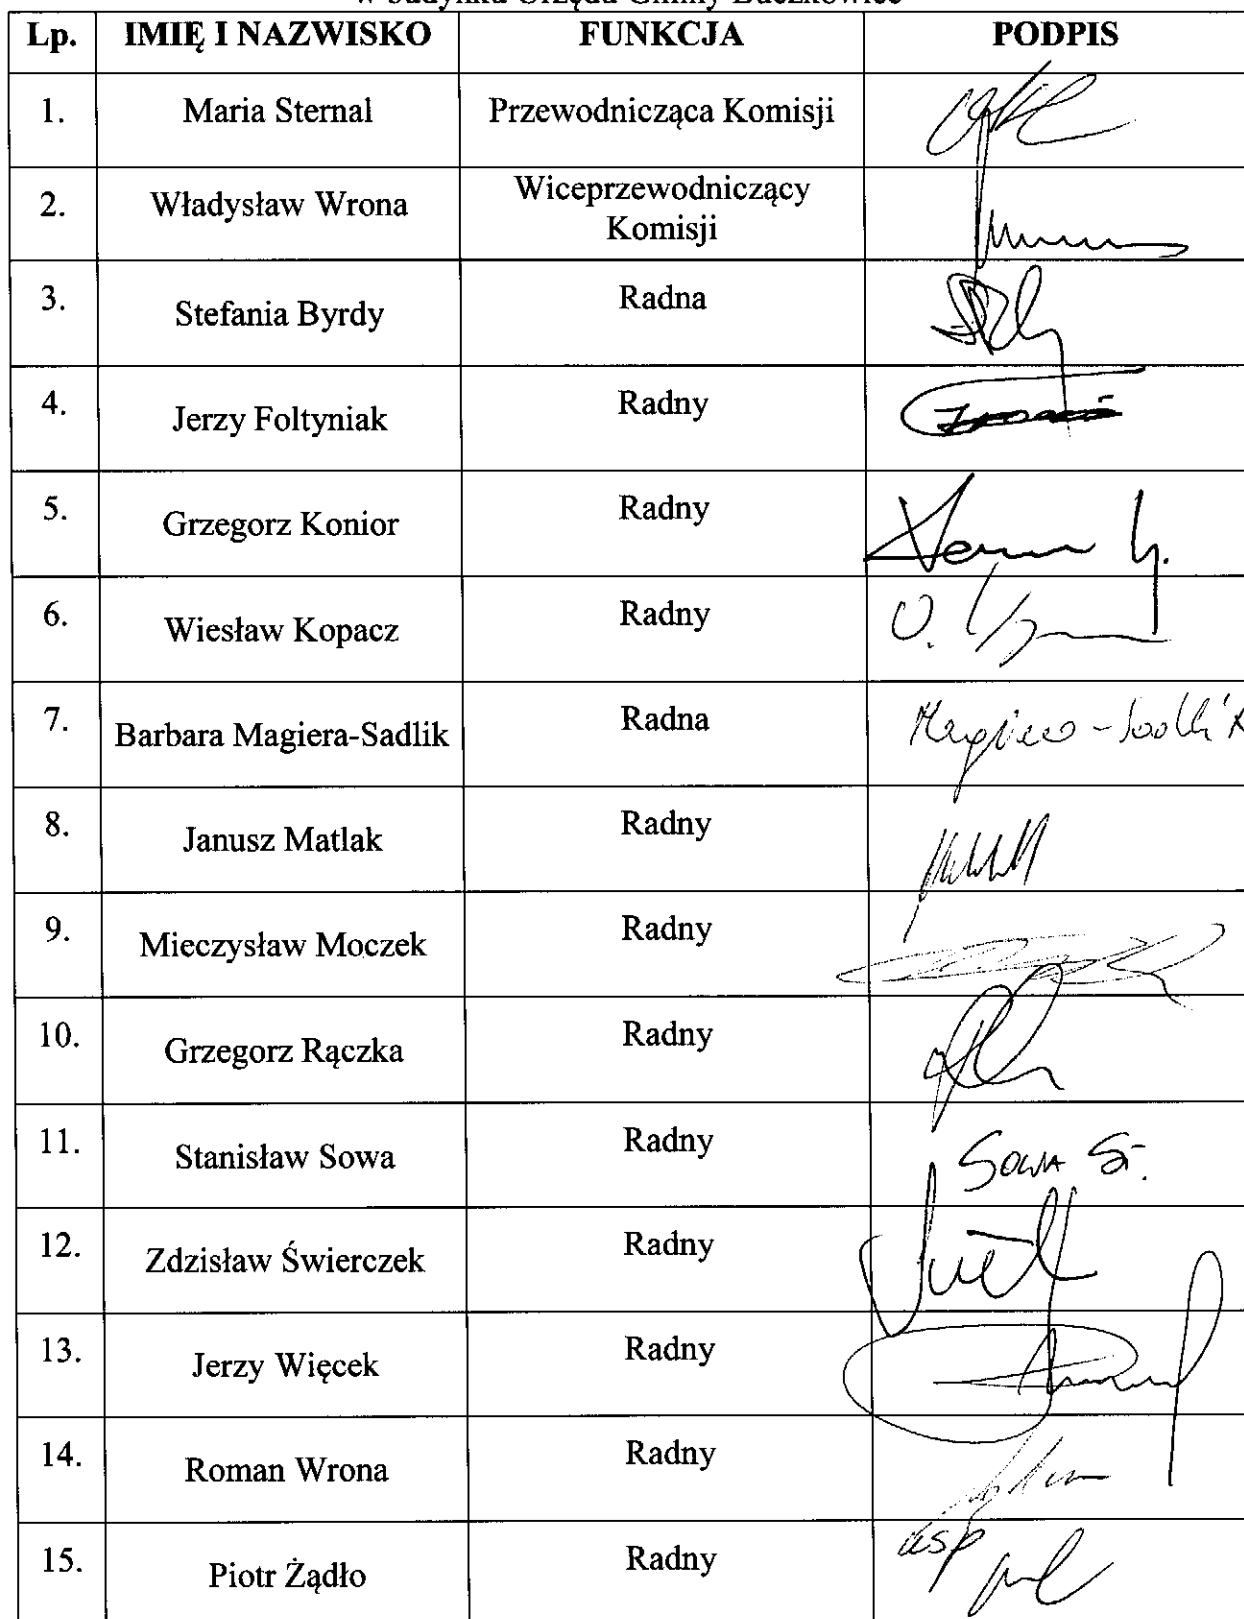 w budynku Urzędu Gminy Buczkowice
Lp. IMIĘ I NAZWISKO FUNKCJA PODPIS
1. Maria Sternal Przewodnicząca Komisji
2. Władysław Wrona Wiceprzewodniczący
Komisji
3. Stefania Byrdy Radna
4. Jerzy Foltyniak Radny
5. Grzegorz Konior Radny
6. Wiesław Kopacz Radny
7. Barbara Magiera-Sadlik Radna Magiera-Sadlik
8. Janusz Matlak Radny
9. Mieczysław Moczek Radny
10. Grzegorz Rączka Radny
11. Stanisław Sowa Radny Sowa St.
12. Zdzisław Świerczek Radny
13. Jerzy Więcek Radny
14. Roman Wrona Radny
15. Piotr Żądło Radny